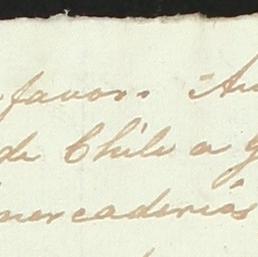 favor.
de Chile a
mercaderias